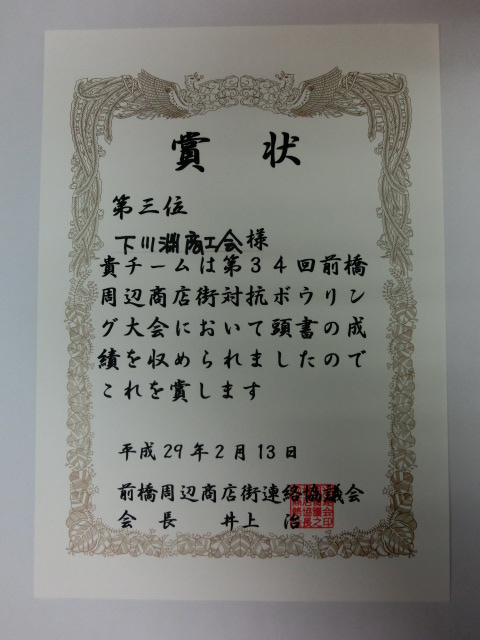 賞状
第三位
下川淵商工会様
貴チームは第34回前橋
周辺商店街対抗ボウリン
グ大会において頭書の成
績を収められましたので
これを賞します
平成29年2月13日
前橋周辺商店街連絡協議会
会長 井上 治